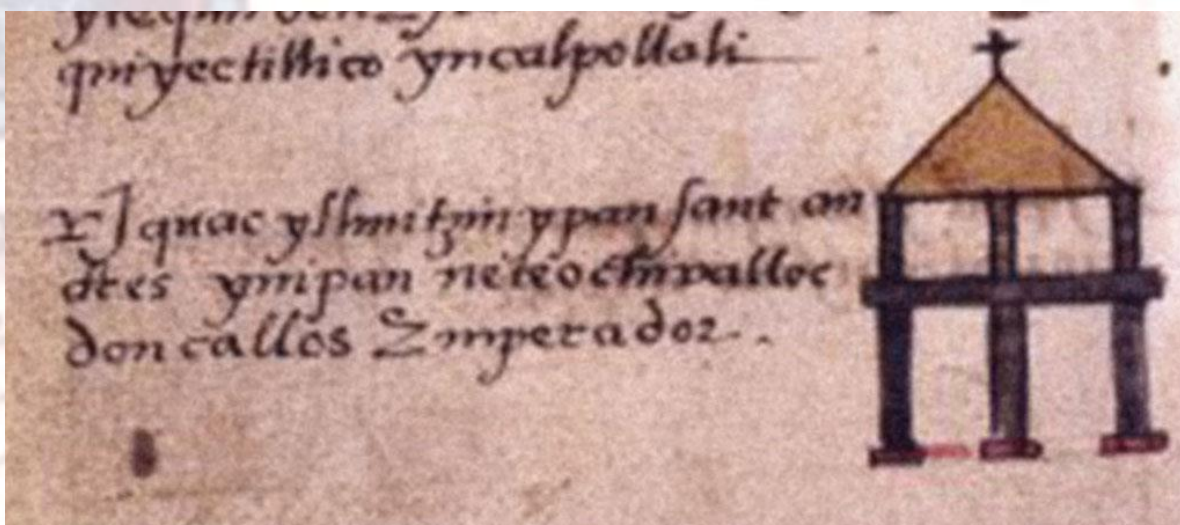 quiyectillico yn calpollali
yquac ylhuitzin ypan sant an
dres ynipan neteochivalloc
don callos Emperador.